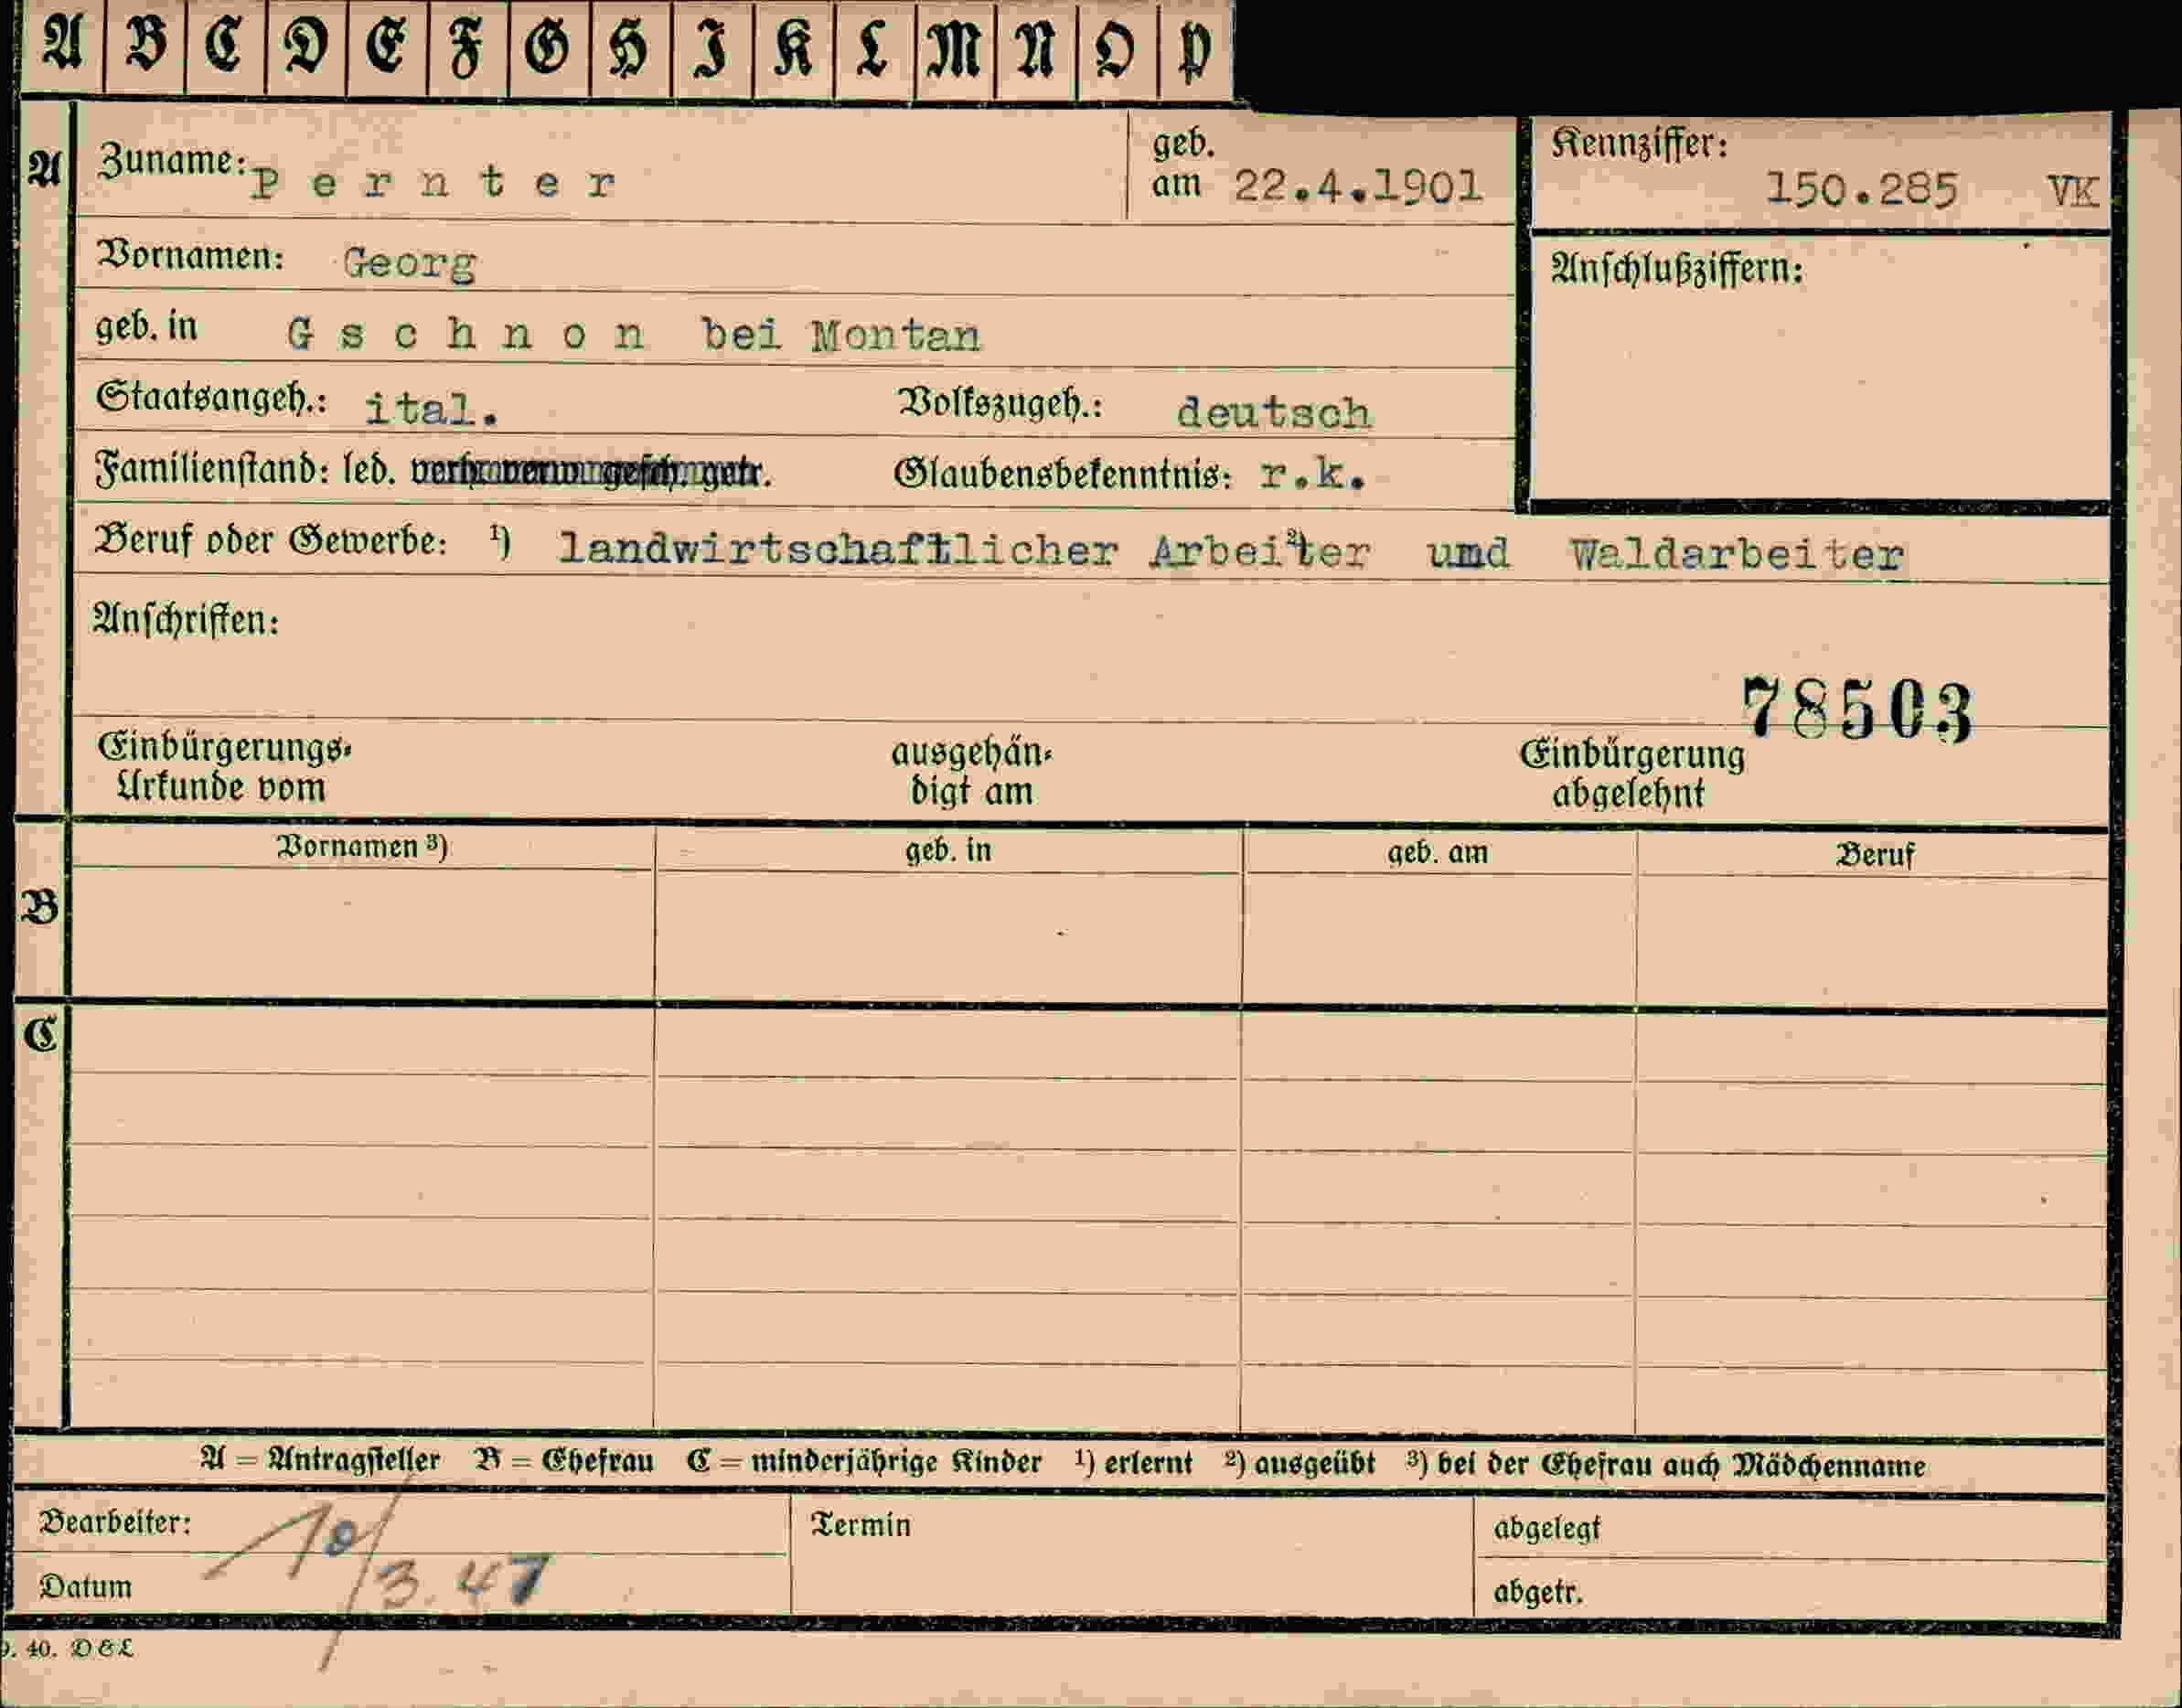 A B C D E F G H I K L M N O P
A Zuname: P e r n t e r geb. am 22.4.1901 Kennziffer: 150.285 VK
Vornamen: Georg Anschlußziffern:
geb. in G s c h n o n bei Montan
Staatsangeh.: ital. Volkszugeh.: deutsch
Familienstand: led. verh. verw. gesch. getr. Glaubensbekenntnis: r.k.
Beruf oder Gewerbe: ¹) landwirtschaftlicher Arbeiter ²) und Waldarbeiter
Anschriften:
78503
Einbürgerungs- ausgehän- Einbürgerung
Urkunde vom digt am abgelehnt
Vornamen ³) geb. in geb. am Beruf
B
C
A = Antragsteller B = Ehefrau C = minderjährige Kinder ¹) erlernt ²) ausgeübt ³) bei der Ehefrau auch Mädchenname
Bearbeiter: Termin abgelegt
10/3.47
Datum abgetr.
40. D&L